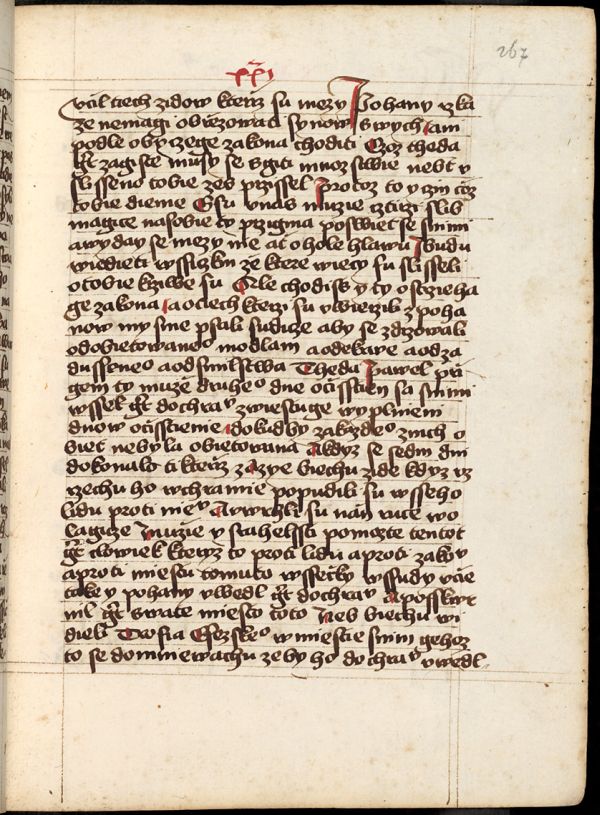 267
xxi
vczil tiech zidow kterz su mezy Pohany rzka
ze nemagi obrzezowati synow swych am
podle obyczege zakona choditi Czoz theda
gt zagiste musy se sgiti mnozstwie nebt v
slisseno tobie zes przissel Protoz to vczin coz
tobie dieme Gsu vnas muzie cztirzi slib
magicze nasobie ty przigma poswiet se snimi
a wyday se mezy nie at ohole hlawu A budu
wiedieti wssiczkni ze ktere wiecy su slisseli
o tobie krziwe su Ale chodiss y ty ostrzieha
ge zakona A o tiech kterzi su vwierzili z poha
now my sme psali sudicze aby se zdrzowali
od obietowaneo modlam a od ekrwe a od za
dussyneo a od smilstwa Theda Pawel przi
gem ty muze druheo dne oczisstien sa snimi
wssel gt do chrau zwiestuge wyplnieni
dnow oczisstienie dokudby zakazdeo z nich o
biet nebyla obietowana A kdyz se sedm dni
dokonalo ti kterz z Azye biechu zide kdyz vz
rzechu ho w chramie popudili su wsseho
lidu proti nieu A wrzli su nan rucze wo
lagicze Muzie y srahelssti pomozte tentot
gt clowiek kteryz to proti lidu a proti zakou
a proti miestu tomuto wssecky wssudy vczie
take y pohany vwedl gt do chrau a posskwr
nil gt swate miesto toto Neb biechu wi
dieli Trofia Efezskeo w miestie snim gehoz
to se domniewachu zeby ho do chrau vwedl